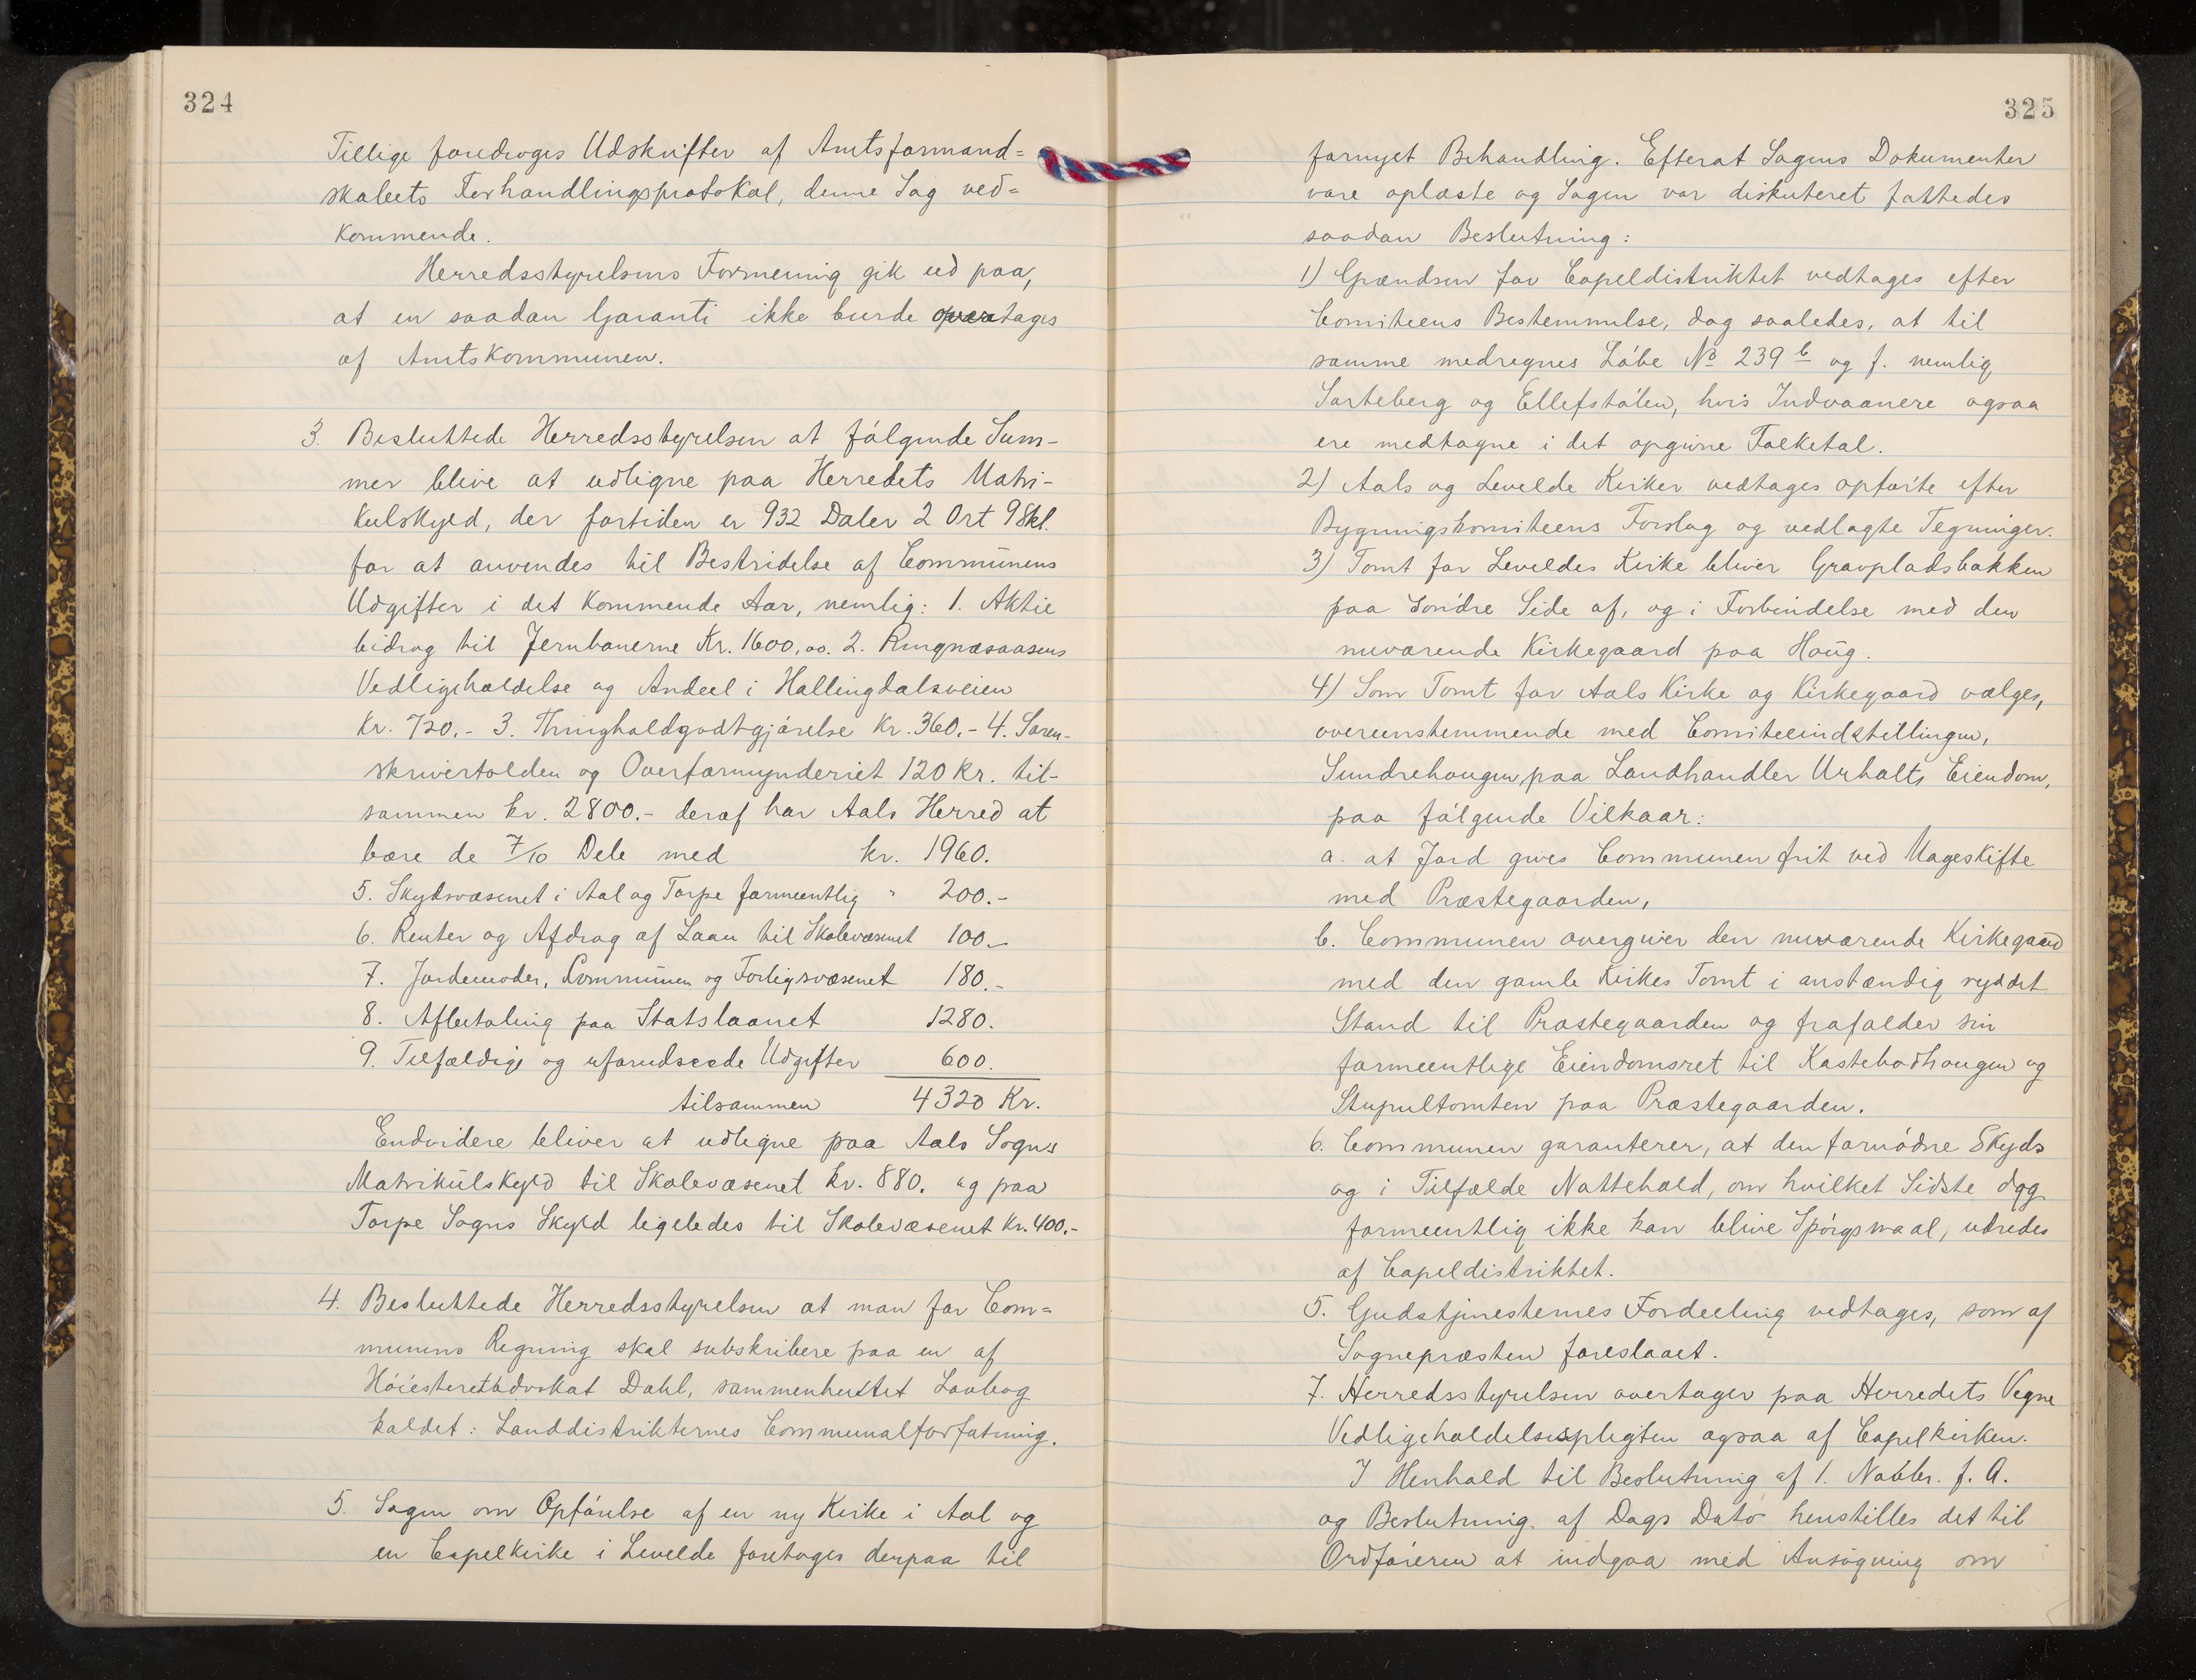 324
Tillige foredroges Udskrifter af Amtsformand=
skabets Forhandlingsprotokol, denne Sag ved=
kommende.
Herredsstyrelsens Formening gik ud paa,
at en saadan Garanti ikke burde overtages
af Amtskommunen.
3. Besluttede Herredsstyrelsen at følgende Sum-
mer blive at udligne paa Herredets Matri-
kulskyld, der fortiden er 932 Daler 2 Ort 9 Skl.
for at anvendes til Bestridelse af Communens
Udgifter i det kommende Aar, nemlig: 1. Aktie
bidrag til Jernbanerne Kr. 1600,00. 2. Ringnæsaasens
Vedligeholdelse og Andeel i Hallingdalsveien
Kr. 720.- 3. Thingholdgodtgjørelse Kr. 360.- 4. Soren-
skrivertolden og Overformynderiet 120 kr. til-
sammen kr. 2800.- deraf har Aals Herred at
bære de 7/10 Dele med kr. 1960.
5. Skydsvæsenet i Aal og Torpe formeentlig " 200.-
6. Renter og Afdrag af Laan til Skolevæsenet 100.-
7. Jordemoder, Communen og Forligsvæsenet 180.-
8. Afbetaling paa Statslaanet 1280.
9. Tilfældige og uforudseede Udgifter 600.
tilsammen 4320 Kr.
Endvidere bliver at udligne paa Aals Sogns
Matrikulskyld til Skolevæsenet kr. 880. og paa
Torpe Sogns Skyld ligeledes til Skolevæsenet Kr. 400.-
4. Besluttede Herredsstyrelsen at man for Com=
munens Regning skal subskribere paa en af
Høiesteretsadvokat Dahl, sammenhæftet Lovbog
kaldet: Landdistrikternes Communalforfatning.
5. Sagen om Opførelse af en ny Kirke i Aal og
en Capelkirke i Levelde foretoges derpaa til
325
fornyet Behandling. Efterat Sagens Dokumenter
vare oplæste og Sagen var diskuteret fattedes
saadan Beslutning:
1) Grændsen for Capeldistriktet vedtages efter
Comiteens Bestemmelse, dog saaledes, at til
samme medregnes Løbe No 239 b og f. nemlig
Sarteberg og Ellefstølen, hvis Indvaanere ogsaa
ere medtagne i det opgivne Folketal.
2) Aals og Levelde Kirker vedtages opførte efter
Bygningskomiteens Forslag og vedlagte Tegninger.
3) Tomt for Leveldes Kirke bliver Gravpladsbakken
paa Søndre Side af, og i Forbindelse med den
nuværende Kirkegaard paa Houg.
4) Som Tomt for Aals Kirke og Kirkegaard vælges,
overeensstemmende med Comiteeindstillingen,
Sundrehougen paa Landhandler Urholts Eiendom,
paa følgende Vilkaar:
a. at Jord gives Communen frit ved Mageskifte
med Præstegaarden,
b. Communen overgiver den nuværende Kirkegaard
med den gamle Kirkes Tomt i anstændig ryddet
Stand til Præstegaarden og frafalder sin
formeentlige Eiendomsret til Kastebodhougen og
Stupultomten paa Præstegaarden.
6. Communen garanterer, at den fornødne Skyds
og i Tilfælde Nattehold, om hvilket Sidste dog
formeentlig ikke kan blive Spørgsmaal, udredes
af Capeldistriktet.
5. Gudstjenesternes Fordeeling vedtages, som af
Sognepræsten foreslaaet.
7. Herredsstyrelsen overtager paa Herredets Vegne
Vedligeholdelsespligten ogsaa af Capelkirken.
I Henhold til Beslutning af 1. Novbr. f. A.
og Beslutning af Dags Dato henstilles det til
Ordføreren at indgaa med Ansøgning om